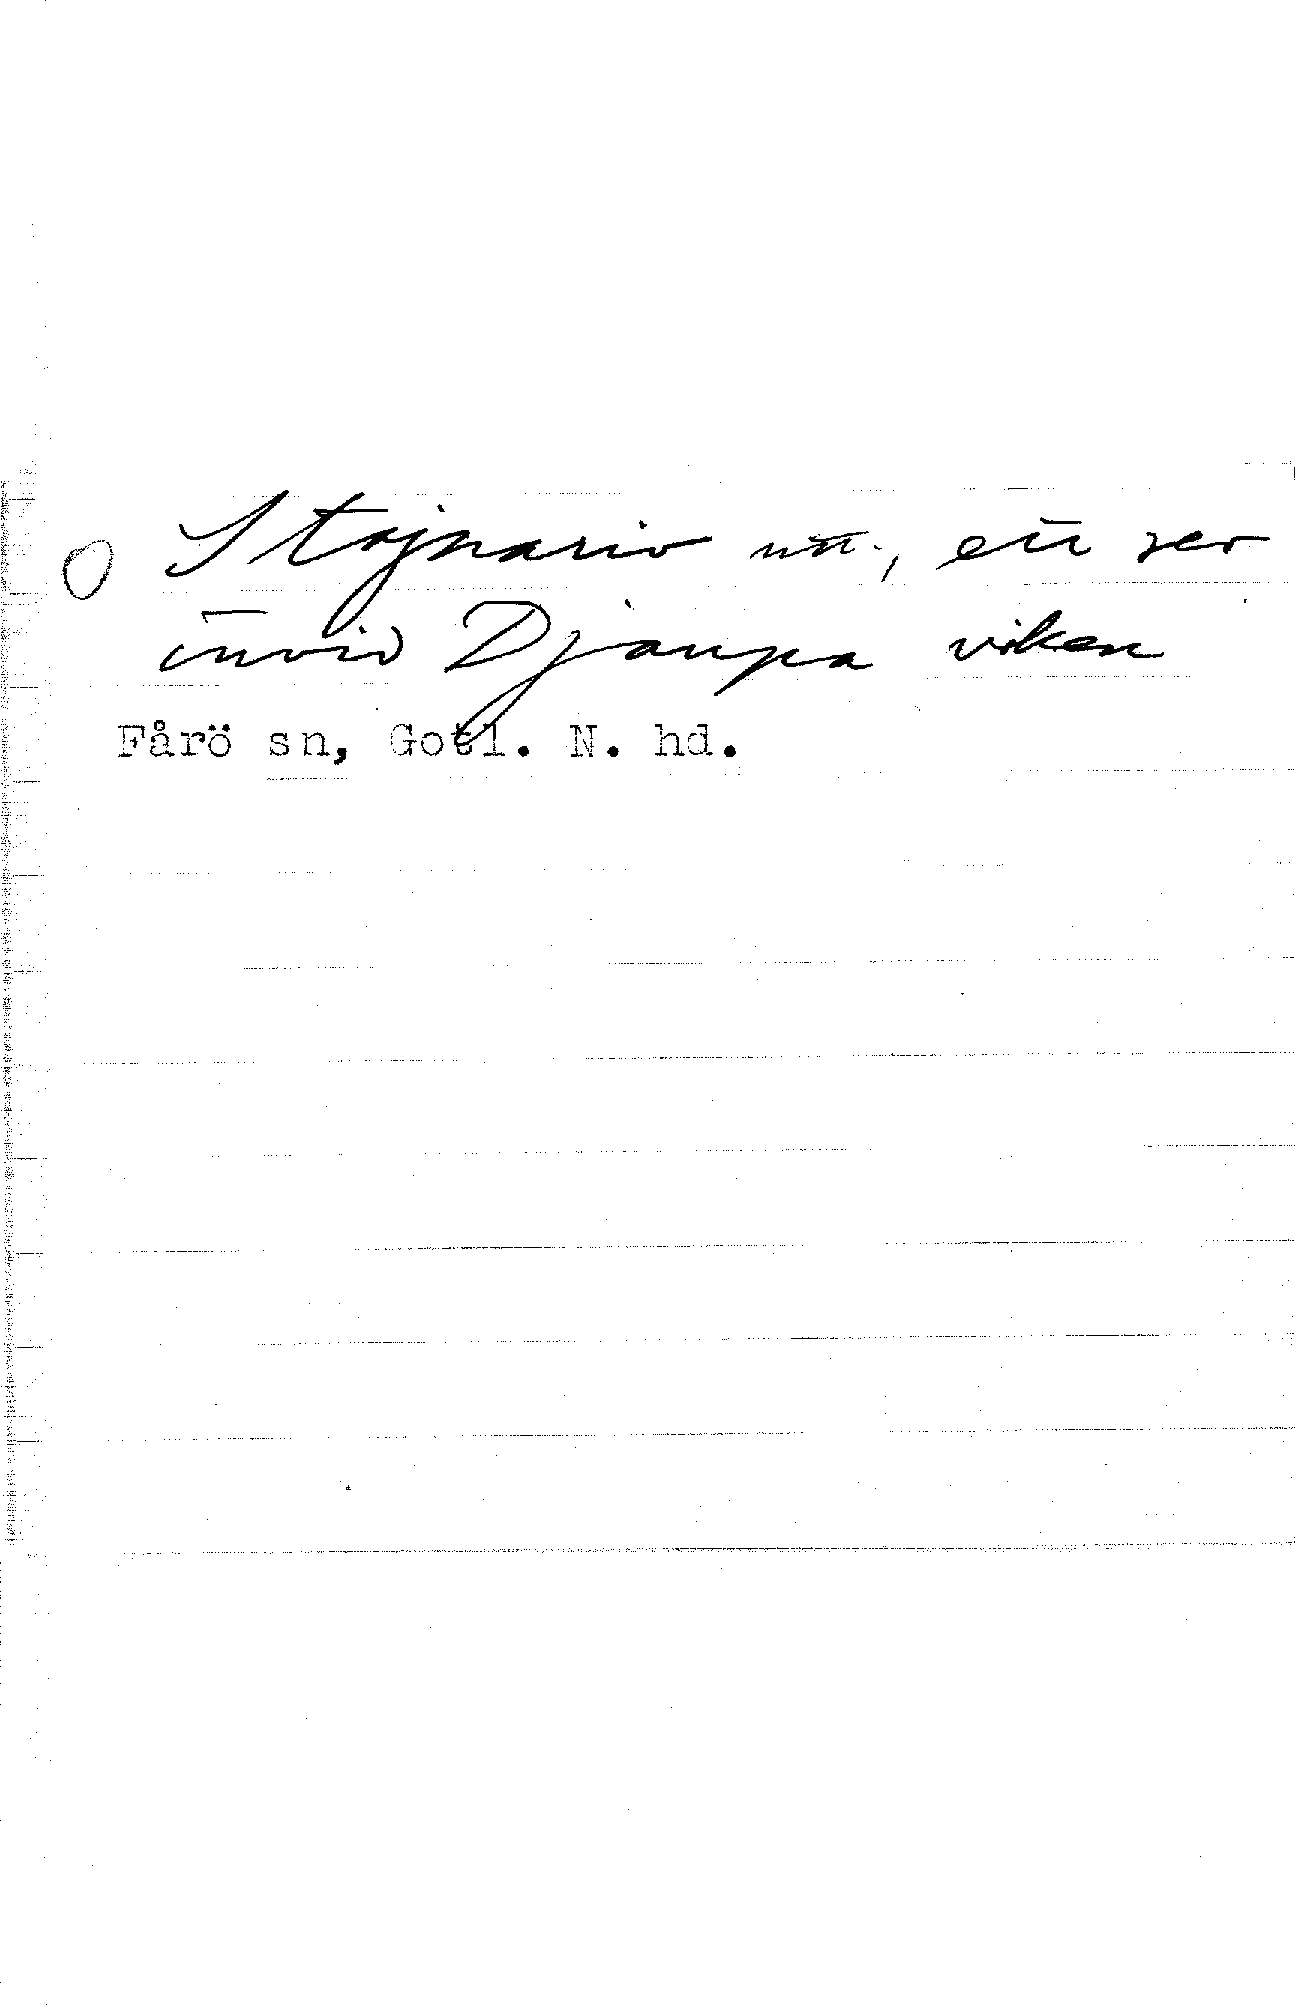 Stajnariv ntr., ett rev
invid Djaupa viken
Fårö sn, Gotl. N. hd.